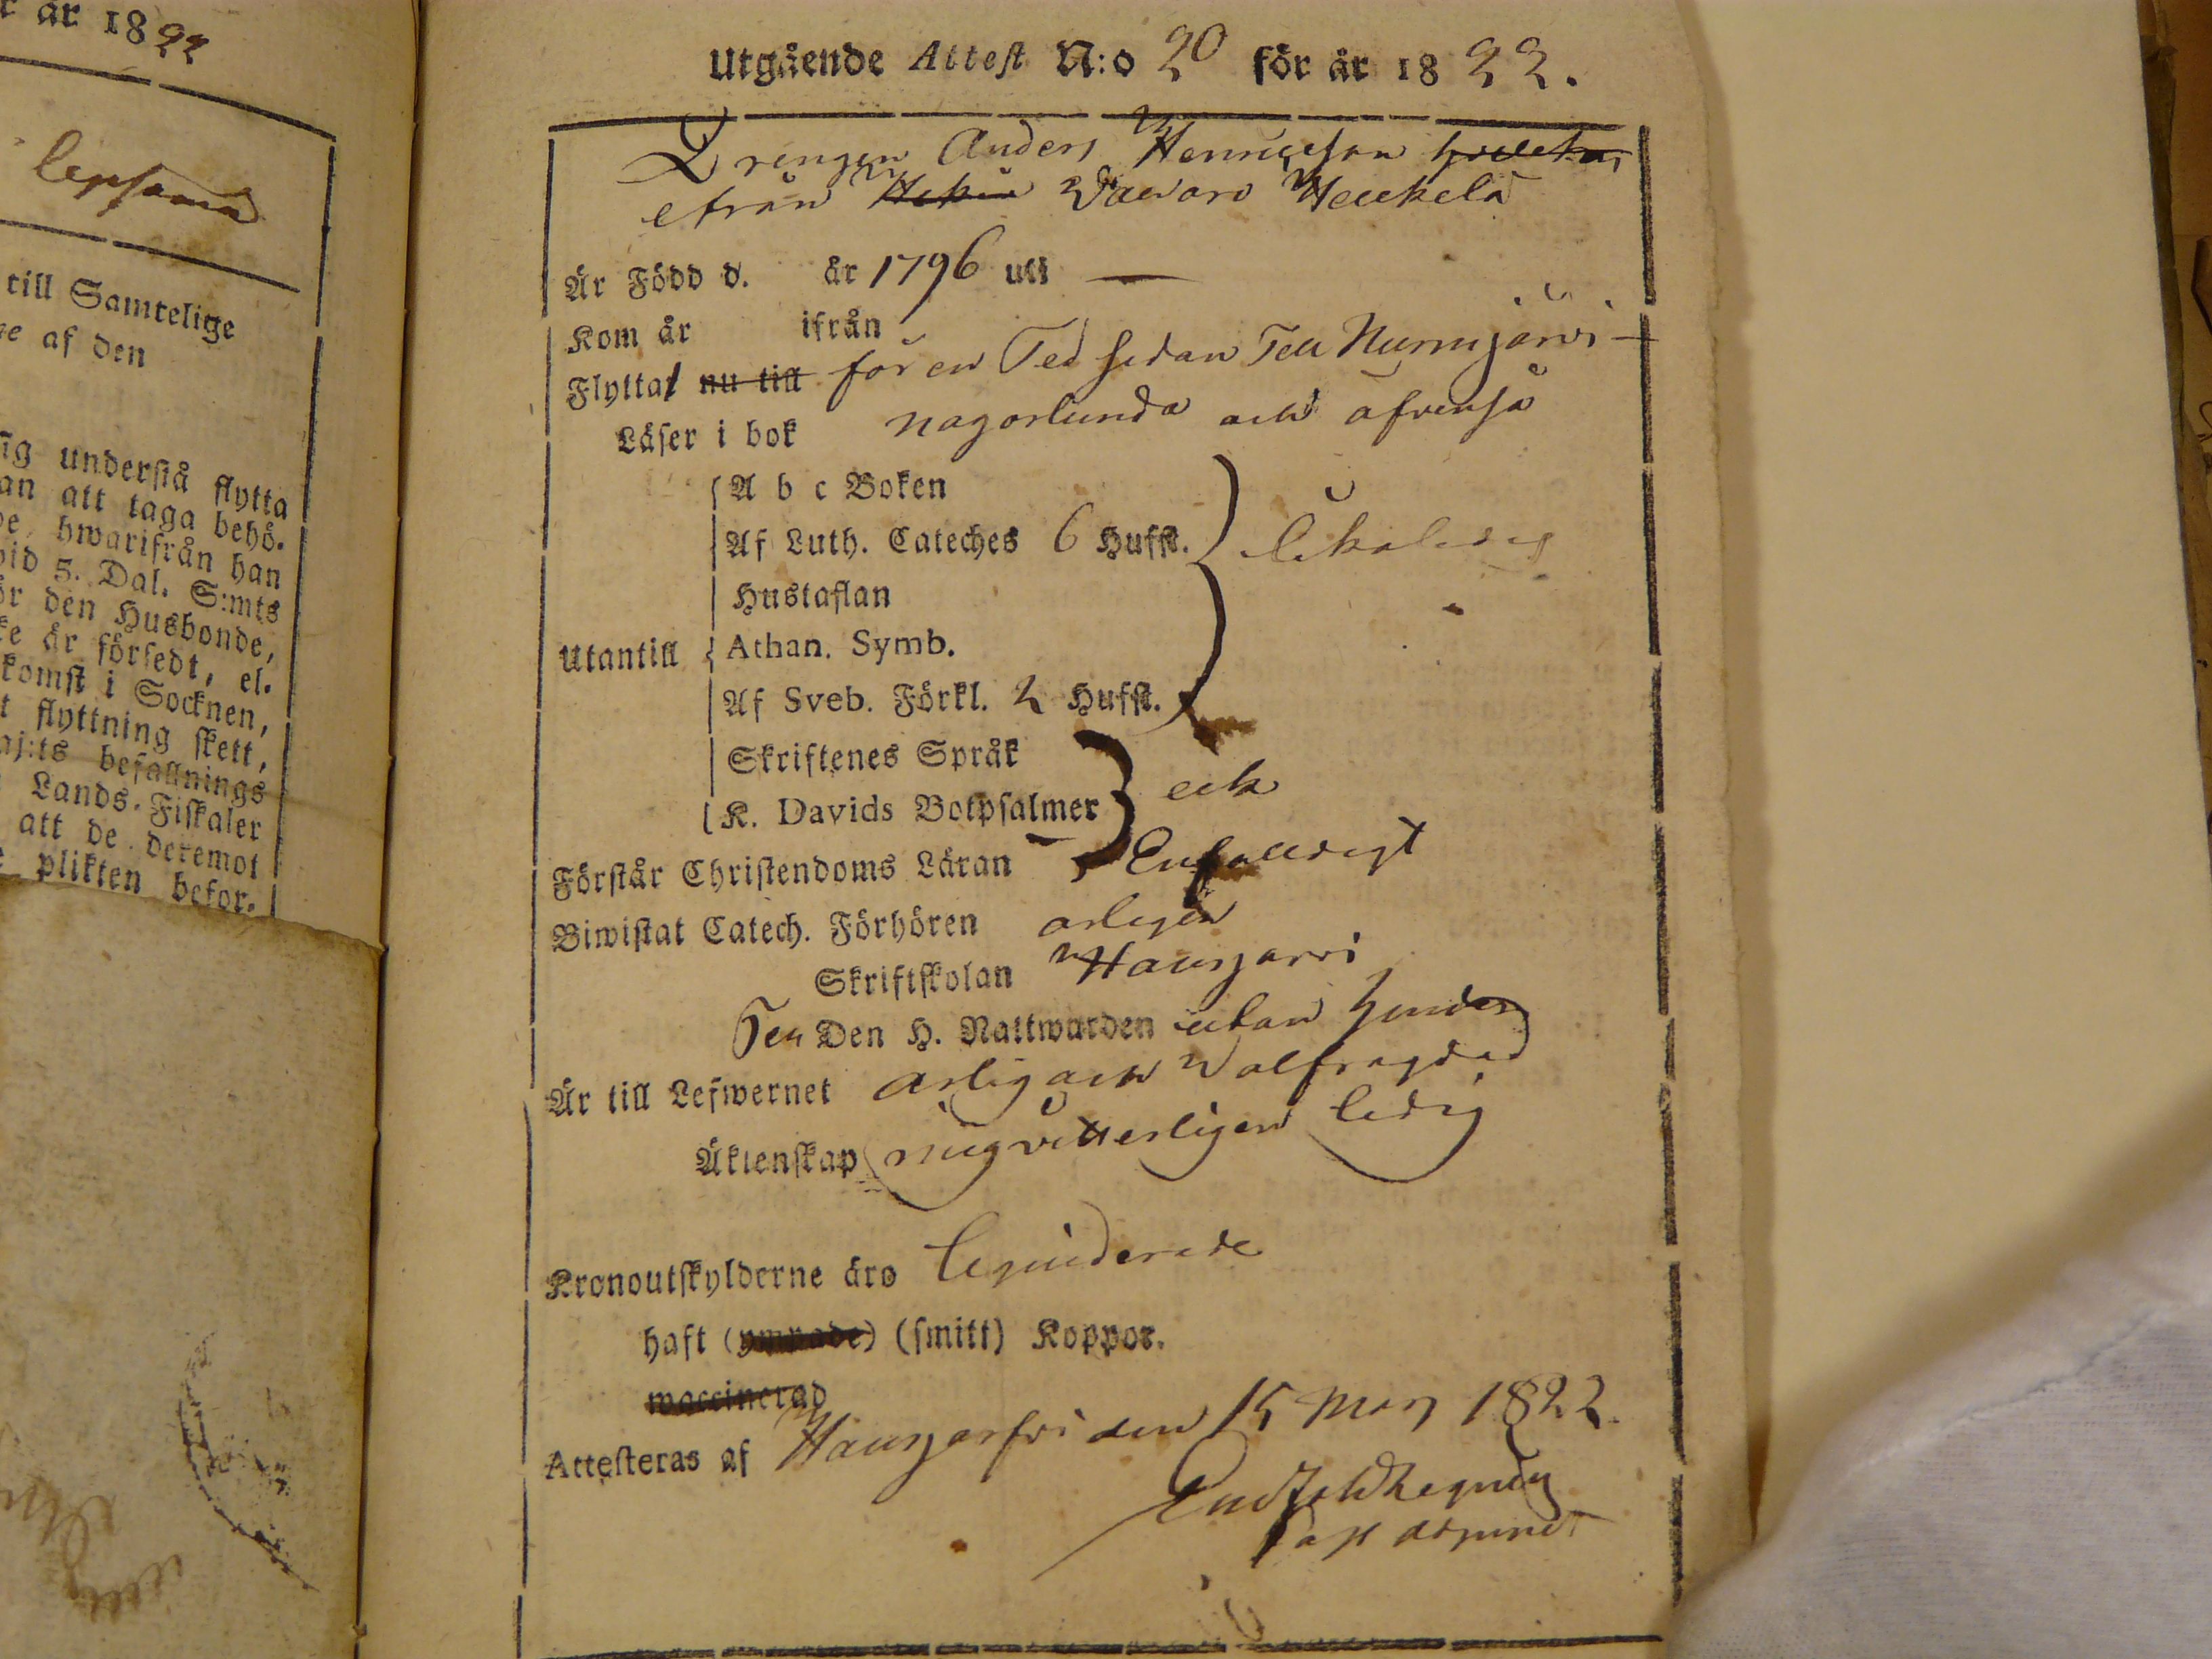 r år 1822
lepsama
till Samtelige
ge af den
sig understå flytta
an att taga behö-
de, hwarifrån han
vid 5. Dal. S:mts
ör den Husbonde,
ke är försedt, el-
komst i Socknen,
t flyttning skett,
aj:ts befallnings
Lands-Fiskaler
att de deremot
e plikten befor-
Utgående Attest N:o 20 för år 1822.
Drengen Anders Henricsson
ifrån Wawaro Heickelä
Är Född d. år 1796 uti —
Kom år ifrån
Flyttat nu till för en Tid sedan Till Nurmijärvi
Läser i bok någorlunda och äfvenså
A b c Boken
Af Luth. Cateches 6 Hufst. likaledes
Hustaflan
Utantill Athan. Symb.
Af Sveb. Förkl. 2 Hufst.
Skriftenes Språk
K. Davids Botpsalmer eik
Förstår Christendoms Läran Enfalldigt
Biwistat Catech. Förhören årligen
Skriftskolan Hausjärvi
Till Den H. Nattwarden utan hinder
Är till Lefwernet ärlig och Wälfrägdad
Äktenskap mig vitterligen ledig
Kronoutskylderne äro liquiderade
haft (ymnade) (smitt) Koppor.
waccinerad
Attesteras af Hausjärfvi den 15 Mars 1822.